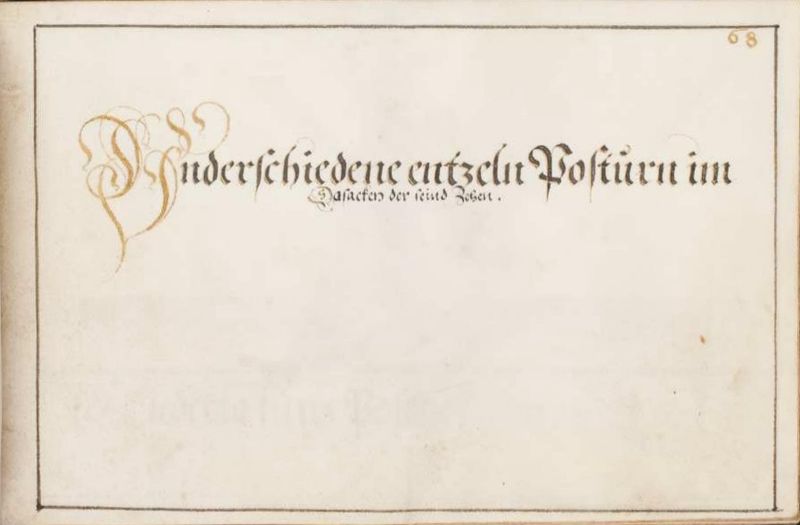 68
Vnderschiedene entzeln Posturn im
Dasacken der seind Zehen.